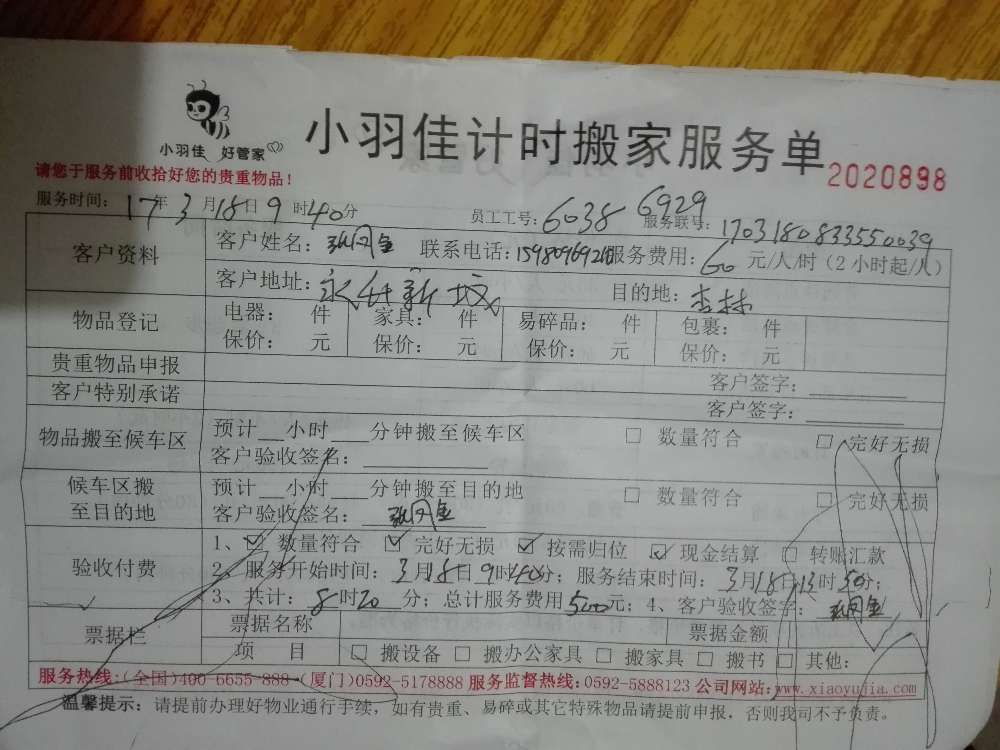 小羽佳 好管家
小羽佳计时搬家服务单 2020898
请您于服务前收拾好您的贵重物品！
服务时间：17年3月18日9时40分 员工工号：6038 6929 服务联号：170318083355 0039
客户资料
客户姓名： 联系电话：1598096921 服务费用：60元/人/时（2小时起/人）
客户地址：永 新城 目的地：杏林
物品登记
电器： 件 家具： 件 易碎品： 件 包裹： 件
保价： 元 保价： 元 保价： 元 保价： 元
贵重物品申报 客户签字：
客户特别承诺 客户签字：
物品搬至候车区
预计__小时___分钟搬至候车区 □ 数量符合 □ 完好无损
客户验收签名：
候车区搬至目的地
预计__小时___分钟搬至目的地 □ 数量符合 □ 完好无损
客户验收签名：
验收付费
1、☑ 数量符合 ☑ 完好无损 ☑ 按需归位 ☑ 现金结算 □ 转账汇款
2、服务开始时间：3月18日9时40分；服务结束时间：3月18日13时50分；
3、共计：8时20分；总计服务费用500元；4、客户验收签字：
票据栏
票据名称 票据金额
项 目 □ 搬设备 □ 搬办公家具 □ 搬家具 □ 搬书 □ 其他：
服务热线:(全国)400-6655-888-(厦门)0592-5178888 服务监督热线:0592-5888123 公司网站:www.xiaoyujia.com
温馨提示：请提前办理好物业通行手续，如有贵重、易碎或其它特殊物品请提前申报，否则我司不予负责。